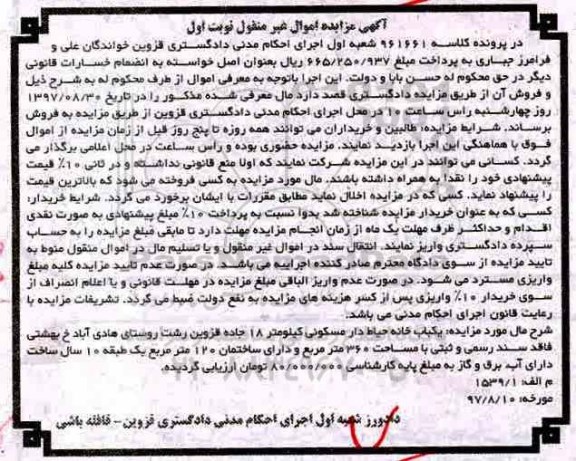 آگهی مزایده اموال غیر منقول نوبت اول
در پرونده کلاسه ۹۶۱۶۶۱ شعبه اول اجرای احکام مدنی دادگستری قزوین خواندگان علی و
فرامرز جباری به پرداخت مبلغ ۶۶۵/۲۵۰/۹۳۷ ریال بعنوان اصل خواسته به انضمام خسارات قانونی
دیگر در حق محکوم له حسن بابا و دولت. این اجرا باتوجه به معرفی اموال از طرف محکوم له به شرح ذیل
و فروش آن از طریق مزایده دادگستری قصد دارد مال معرفی شده مذکور را در تاریخ ۱۳۹۷/۰۸/۳۰
روز چهارشنبه راس ساعت ۱۰ در محل اجرای احکام مدنی دادگستری قزوین از طریق مزایده به فروش
برساند. شرایط مزایده: طالبین و خریداران می توانند همه روزه تا پنج روز قبل از زمان مزایده از اموال
فوق با هماهنگی این اجرا بازدید نمایند. مزایده حضوری بوده و راس ساعت در محل اعلامی برگذار می
گردد. کسانی می توانند در این مزایده شرکت نمایند که اولا منع قانونی نداشته و در ثانی ۱۰٪ قیمت
پیشنهادی خود را نقدا به همراه داشته باشند. مال مورد مزایده به کسی فروخته می شود که بالاترین قیمت
را پیشنهاد نماید. کسی که در مزایده اخلال نماید مطابق مقررات با ایشان برخورد می گردد. شرایط خریدار:
کسی که به عنوان خریدار مزایده شناخته شد بدوا نسبت به پرداخت ۱۰٪ مبلغ پیشنهادی به صورت نقدی
اقدام و حداکثر ظرف مهلت یک ماه از زمان انجام مزایده مهلت دارد تا مابقی مبلغ مزایده را به حساب
سپرده دادگستری واریز نمایند. انتقال سند در اموال غیر منقول و یا تسلیم مال در اموال منقول منوط به
تایید مزایده از سوی دادگاه محترم صادر کننده اجراییه می باشد. در صورت عدم تایید مزایده کلیه مبلغ
واریزی مسترد می شود. در صورت عدم واریز الباقی مبلغ مزایده در مهلت قانونی و یا اعلام انصراف از
سوی خریدار ۱۰٪ واریزی پس از کسر هزینه های مزایده به نفع دولت ضبط می گردد. تشریفات مزایده با
رعایت قانون اجرای احکام مدنی می باشد.
شرح مال مورد مزایده: یکباب خانه حیاط دار مسکونی کیلومتر ۱۸ جاده قزوین رشت روستای هادی آباد خ بهشتی
فاقد سند رسمی و ثبتی با مساحت ۳۶۰ متر مربع و دارای ساختمان ۱۲۰ متر مربع یک طبقه ۱۰ سال ساخت
دارای آب، برق و گاز به مبلغ پایه کارشناسی ۸۰/۰۰۰/۰۰۰ تومان ارزیابی گردیده.
م الف: ۱۵۳۹/۱
مورخه: ۹۷/۸/۱۰
دادورز شعبه اول اجرای احکام مدنی دادگستری قزوین - قافله باشی